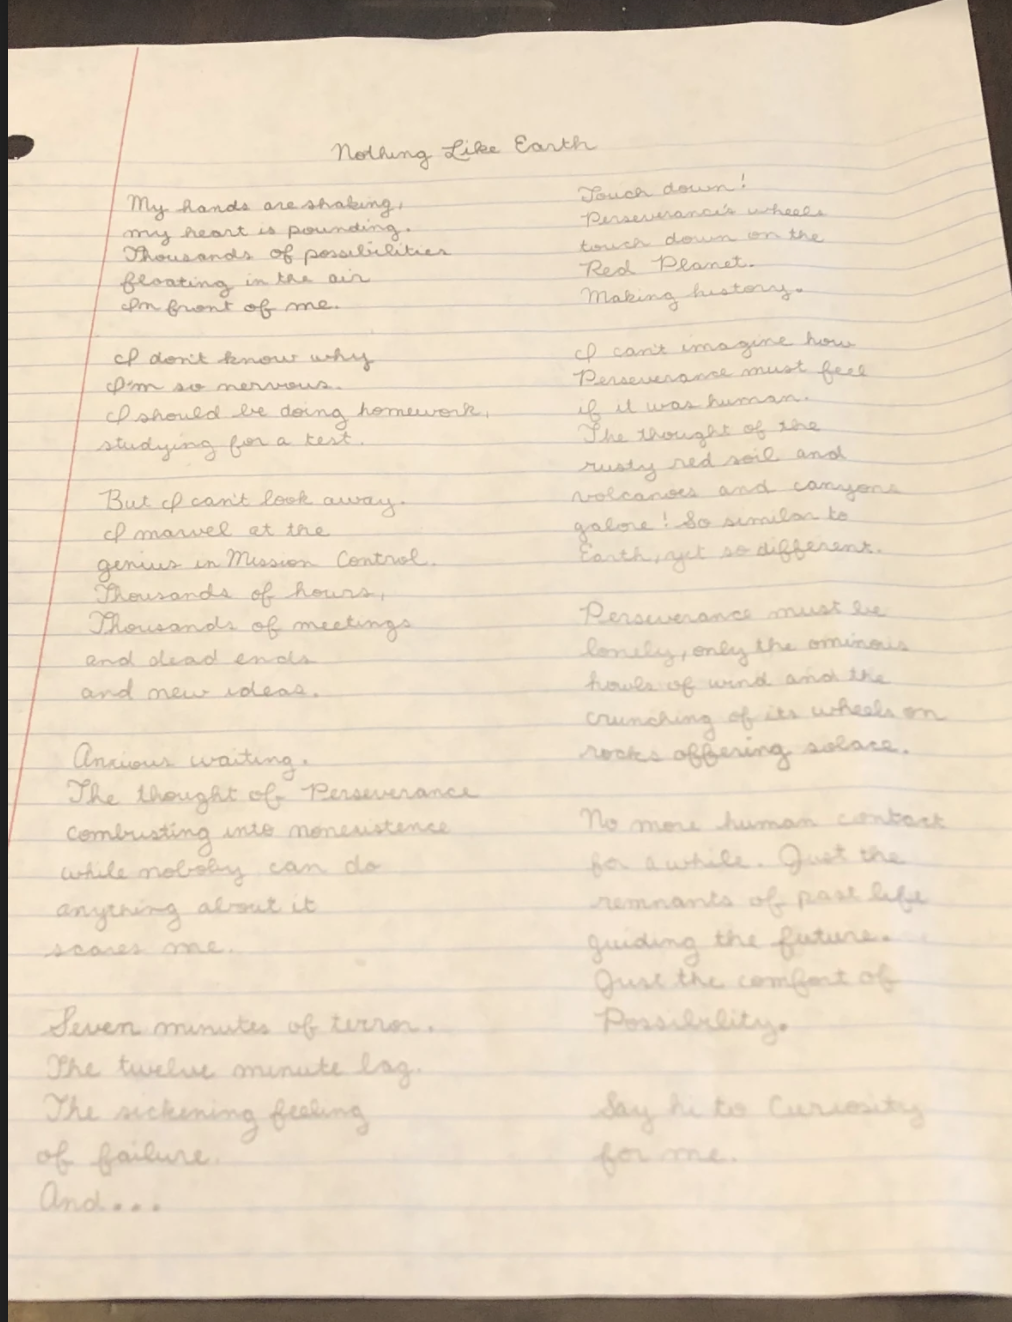 Nothing Like Earth
My hands are shaking,
my heart is pounding.
Thousands of possibilities
floating in the air
In front of me.
I don't know why
I'm so nervous.
I should be doing homework,
studying for a test.
But I can't look away.
I marvel at the
genius in Mission Control.
Thousands of hours,
Thousands of meetings
and dead ends
and new ideas.
Anxious waiting.
The thought of Perseverance
combusting into nonexistence
while noboby can do
anything about it
scares me.
Seven minutes of terror.
The twelve minute lag.
The sickening feeling
of failure.
And...
Touch down!
Perseverance's wheels
touch down on the
Red Planet.
Making history.
I can't imagine how
Perseverance must feel
if it was human.
The thought of the
rusty red soil and
volcanoes and canyons
galore! So similar to
Earth, yet so different.
Perseverance must be
lonely, only the ominous
howls of wind and the
crunching of its wheels on
rocks offering solace.
No more human contact
for a while. Just the
remnants of past life
guiding the future.
Just the comfort of
Possibility.
Say hi to Curiosity
for me.